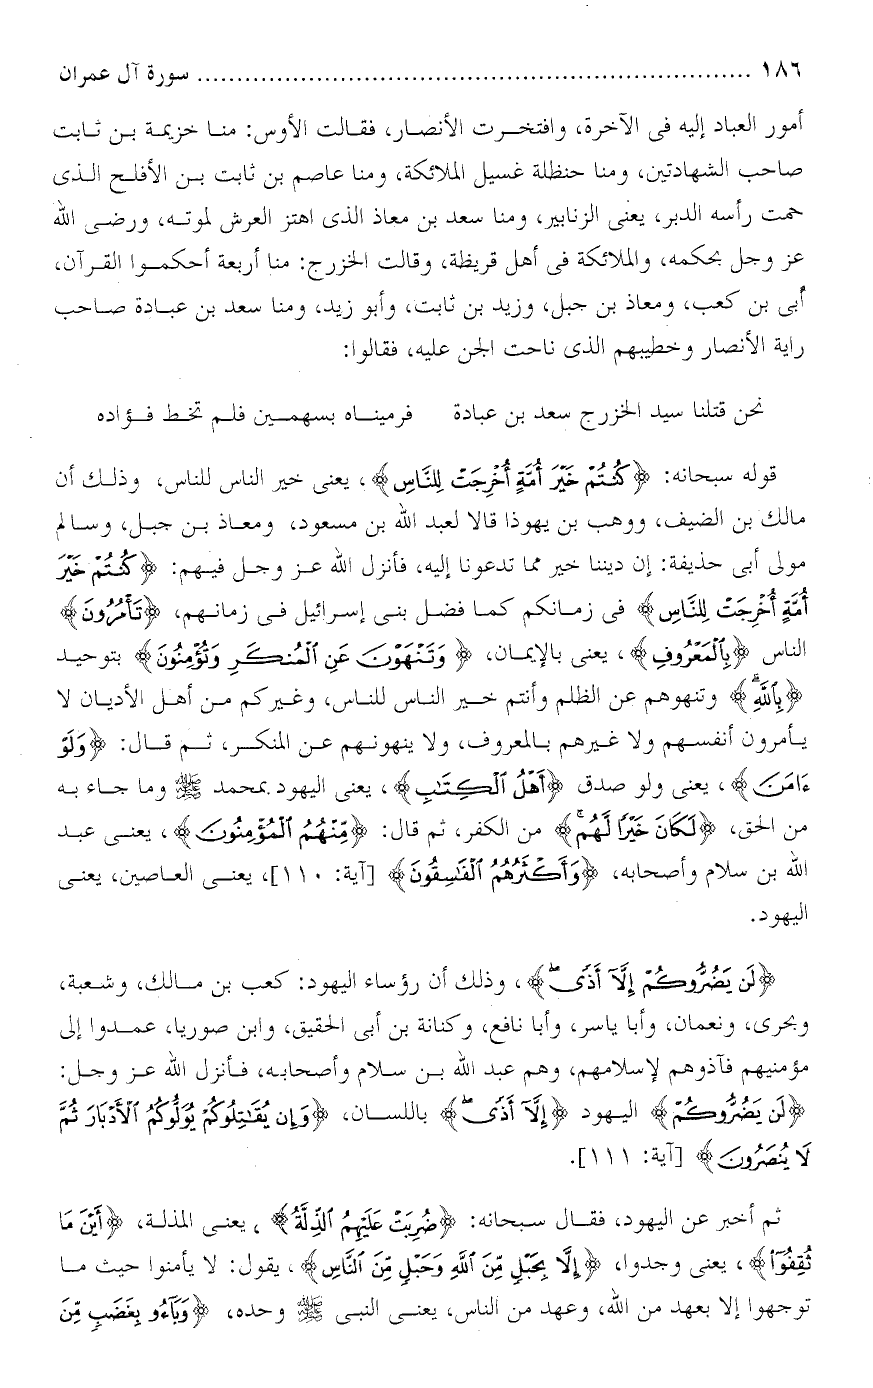 ١٨٦ ........................................ سورة آل عمران
أمور العباد إليه فى الآخرة، وافتخرت الأنصار، فقالت الأوس: منا خزيمة بن ثابت
صاحب الشهادتين، ومنا حنظلة غسيل الملائكة، ومنا عاصم بن ثابت بن الأفلح الذى
حمت رأسه الدبر، يعنى الزنابير، ومنا سعد بن معاذ الذى اهتز العرش لموته، ورضى الله
عز وجل بحكمه، والملائكة فى أهل قريظة، وقالت الخزرج: منا أربعة أحكموا القرآن،
أبى بن كعب، ومعاذ بن جبل، وزيد بن ثابت، وأبو زيد، ومنا سعد بن عبادة صاحب
راية الأنصار وخطيبهم الذى ناحت الجن عليه، فقالوا:
نحن قتلنا سيد الخزرج سعد بن عبادة فرميناه بسهمين فلم تخط فؤاده
قوله سبحانه: ﴿كُنتُمْ خَيْرَ أُمَّةٍ أُخْرِجَتْ لِلنَّاسِ﴾، يعنى خير الناس للناس، وذلك أن
مالك بن الضيف، ووهب بن يهوذا قالا لعبد الله بن مسعود، ومعاذ بن جبل، وسالم
مولى أبى حذيفة: إن ديننا خير مما تدعونا إليه، فأنزل الله عز وجل فيهم: ﴿كُنتُمْ خَيْرَ
أُمَّةٍ أُخْرِجَتْ لِلنَّاسِ﴾ فى زمانكم كما فضل بنى إسرائيل فى زمانهم، ﴿تَأْمُرُونَ﴾
الناس ﴿بِٱلْمَعْرُوفِ﴾، يعنى بالإيمان، ﴿وَتَنْهَوْنَ عَنِ ٱلْمُنكَرِ وَتُؤْمِنُونَ﴾ بتوحيد
﴿بِٱللَّهِ ۗ﴾ وتنهوهم عن الظلم وأنتم خير الناس للناس، وغيركم من أهل الأديان لا
يأمرون أنفسهم ولا غيرهم بالمعروف، ولا ينهونهم عن المنكر، ثم قال: ﴿وَلَوْ
ءَامَنَ﴾، يعنى ولو صدق ﴿أَهْلُ ٱلْكِتَٰبِ﴾، يعنى اليهود بمحمد ﷺ وما جاء به
من الحق، ﴿لَكَانَ خَيْرًا لَّهُم ۚ﴾ من الكفر، ثم قال: ﴿مِّنْهُمُ ٱلْمُؤْمِنُونَ﴾، يعنى عبد
الله بن سلام وأصحابه، ﴿وَأَكْثَرُهُمُ ٱلْفَٰسِقُونَ﴾ [آية: ١١٠]، يعنى العاصين، يعنى
اليهود.
﴿لَن يَضُرُّوكُمْ إِلَّآ أَذًى ۖ﴾، وذلك أن رؤساء اليهود: كعب بن مالك، وشعبة،
وبحرى، ونعمان، وأبا ياسر، وأبا نافع، وكنانة بن أبى الحقيق، وابن صوريا، عمدوا إلى
مؤمنيهم فآذوهم لإسلامهم، وهم عبد الله بن سلام وأصحابه، فأنزل الله عز وجل:
﴿لَن يَضُرُّوكُمْ﴾ اليهود ﴿إِلَّآ أَذًى ۖ﴾ باللسان، ﴿وَإِن يُقَٰتِلُوكُمْ يُوَلُّوكُمُ ٱلْأَدْبَارَ ثُمَّ
لَا يُنصَرُونَ﴾ [آية: ١١١].
ثم أخبر عن اليهود، فقال سبحانه: ﴿ضُرِبَتْ عَلَيْهِمُ ٱلذِّلَّةُ﴾، يعنى المذلة، ﴿أَيْنَ مَا
ثُقِفُوٓا۟﴾، يعنى وجدوا، ﴿إِلَّا بِحَبْلٍ مِّنَ ٱللَّهِ وَحَبْلٍ مِّنَ ٱلنَّاسِ﴾، يقول: لا يأمنوا حيث ما
توجهوا إلا بعهد من الله، وعهد من الناس، يعنى النبى ﷺ وحده، ﴿وَبَآءُو بِغَضَبٍ مِّنَ